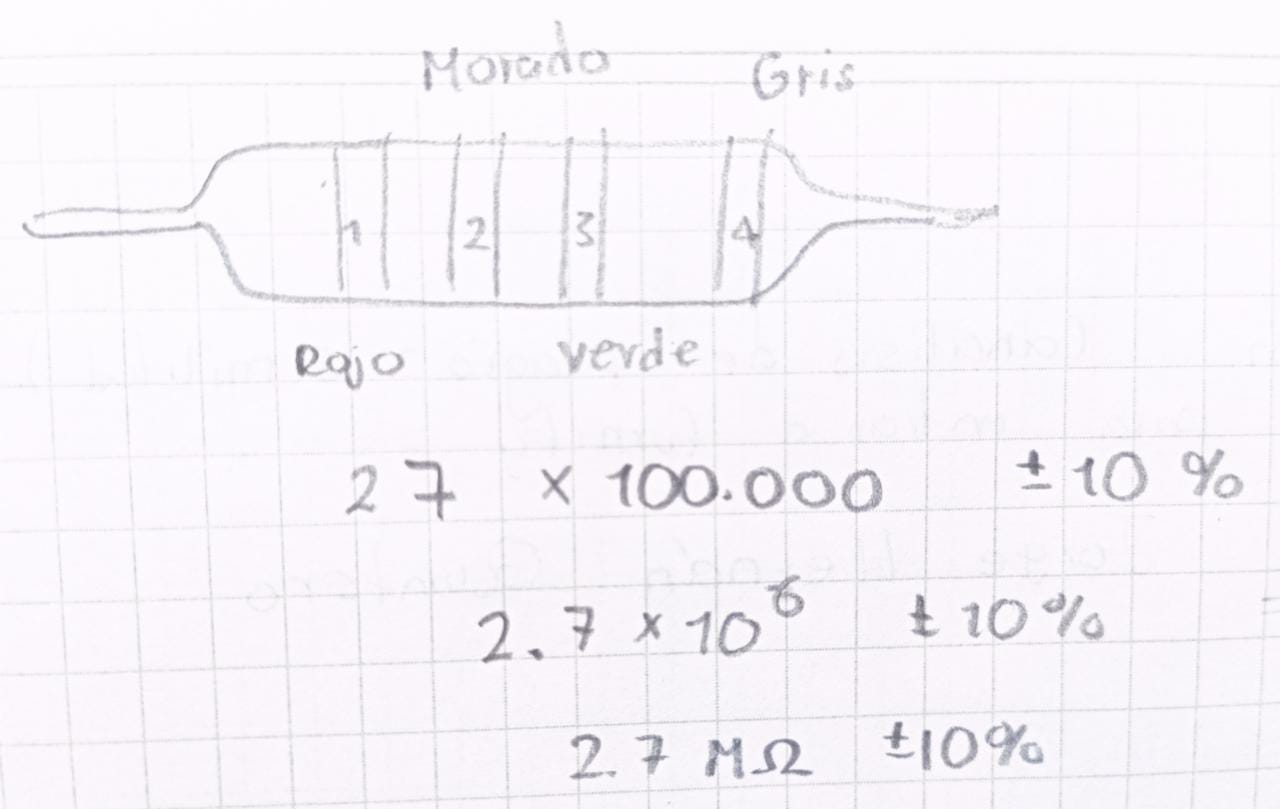 Morado Gris
1 2 3 4
Rojo verde
27 × 100.000 ± 10 %
2.7 × 10⁶ ± 10%
2.7 MΩ ±10%